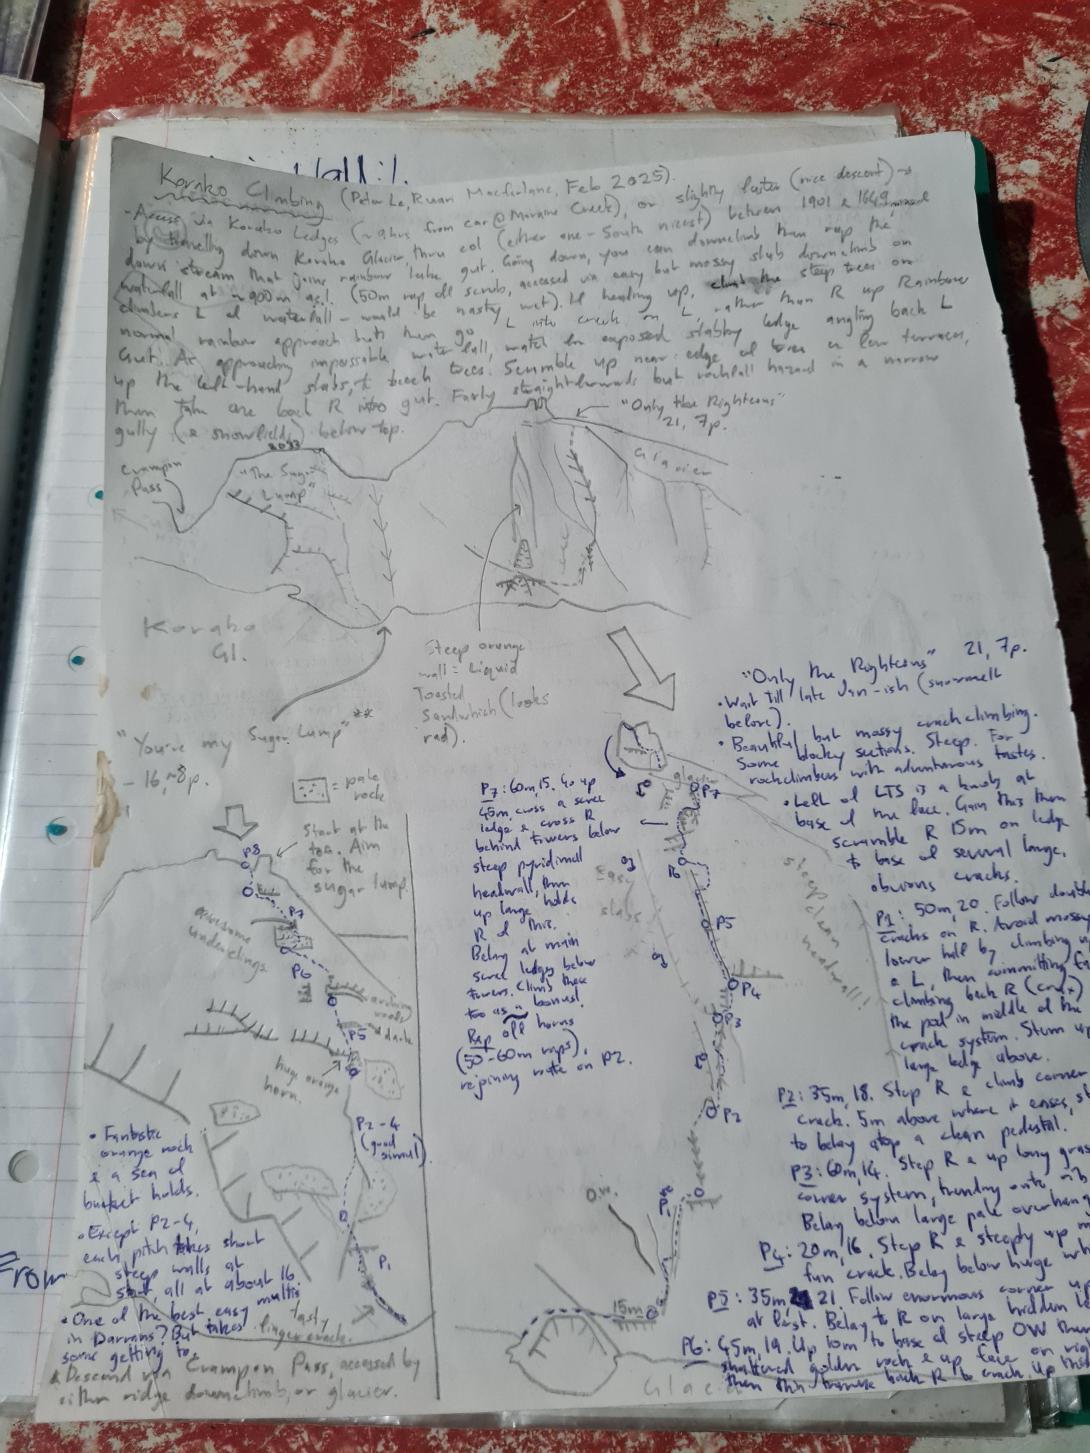 Korako Climbing (Peter Le, Ruan Macfarlane, Feb 2025).
- Access via Korako Ledges (~9hrs from car @ Moraine Creek), or slightly faster (nice descent) →
by travelling down Korako Glacier thru col (either one - South nicest) between 1901 & 1669,
down stream that joins rainbow lake gut. Going down, you can downclimb then rap the
waterfall at ~900m asl. (50m rap off scrub, accessed via easy but mossy slab downclimb on
climbers L of waterfall - would be nasty wet). If heading up, climb the steep trees on
normal rainbow approach but then go L into creek on L, rather than R up Rainbow
Gut. At approaching impassable waterfall, watch for exposed slabby ledge angling back L
up the left-hand slabs, to beech trees. Scramble up near edge of trees on low terraces,
then take one back R into gut. Fairly straightforwards but rockfall hazard in a narrow
gully (& snowfields) below top.
"Only the Righteous"
21, 7p.
Crampon
Pass
2033
"The Sugar
Lump"
Glacier
Korako
Gl.
Steep orange
wall = Liquid
Toasted
Sandwhich (looks
rad).
"You're my Sugar Lump" **
- 16, ~8p.
= pale
rock
Start at the
toe. Aim
for the
sugar lump.
P8
P7
awesome
underclings
P6
P5
dark
huge orange
horn.
P2-4
(good
simul)
P1
tasty
finger crack.
• Fantastic
orange rock
& a sea of
bucket holds.
• Except P2-4,
each pitch takes short
steep walls at
start, all at about 16.
• One of the best easy multis
in Darrans? But takes
some getting to.
• Descend via Crampon Pass, accessed by
either ridge downclimb, or glacier.
From
"Only the Righteous" 21, 7p.
• Wait till late Jan-ish (snowmelt
before).
• Beautiful but mossy crack climbing.
Some blocky sections. Steep. For
rockclimbers with adventurous tastes.
• Left of LTS is a knob at
base of the face. Gain this then
scramble R 15m on ledge
to base of several large,
obvious cracks.
P1: 50m, 20. Follow double
cracks on R. Avoid mossy
lower half by climbing
L, then committing
climbing back R (crux)
the pod in middle of the
crack system. Stem up
large ledge above.
P2: 35m, 18. Step R & climb corner
crack. 5m above where it eases,
to belay atop a clean pedestal.
P3: 60m, 14. Step R & up long
corner system, trending onto
Belay below large pale
P4: 20m, 16. Step R & steeply up
fun crack. Belay below huge
P5: 35m, 21 Follow enormous corner
at last. Belay to R on large hidden
P6: 45m, 19. Up 10m to base of steep OW then
shattered golden rock & up face on
then thin traverse back R to crack. Up
P7: 60m, 15. Go up
45m, cross a scree
ledge & cross R
behind towers below
steep pyridimal
headwall, then
up large holds
R of this.
Belay at main
scree ledges below
towers. Climb these
too as a bonus!
Rap off horns
(50-60m raps),
rejoining route on P2.
P7
P6
Easy
slabs
P5
P4
P3
P2
steep clean
headwall!
O.W.
P1
15m
Glacier